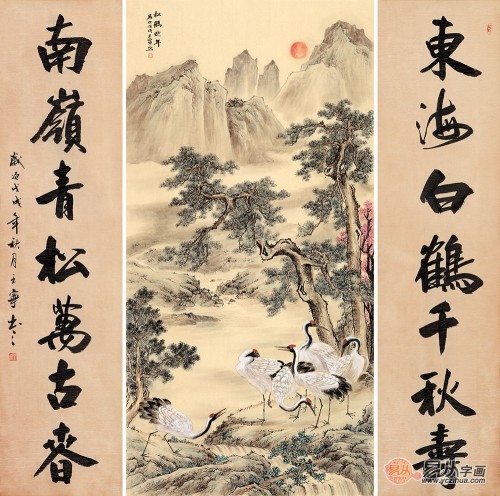 東海白鶴千秋壽
松鶴延年
南嶺青松萬古春
歲次戊戌年秋月王華書
易从字画
www.yczihua.com